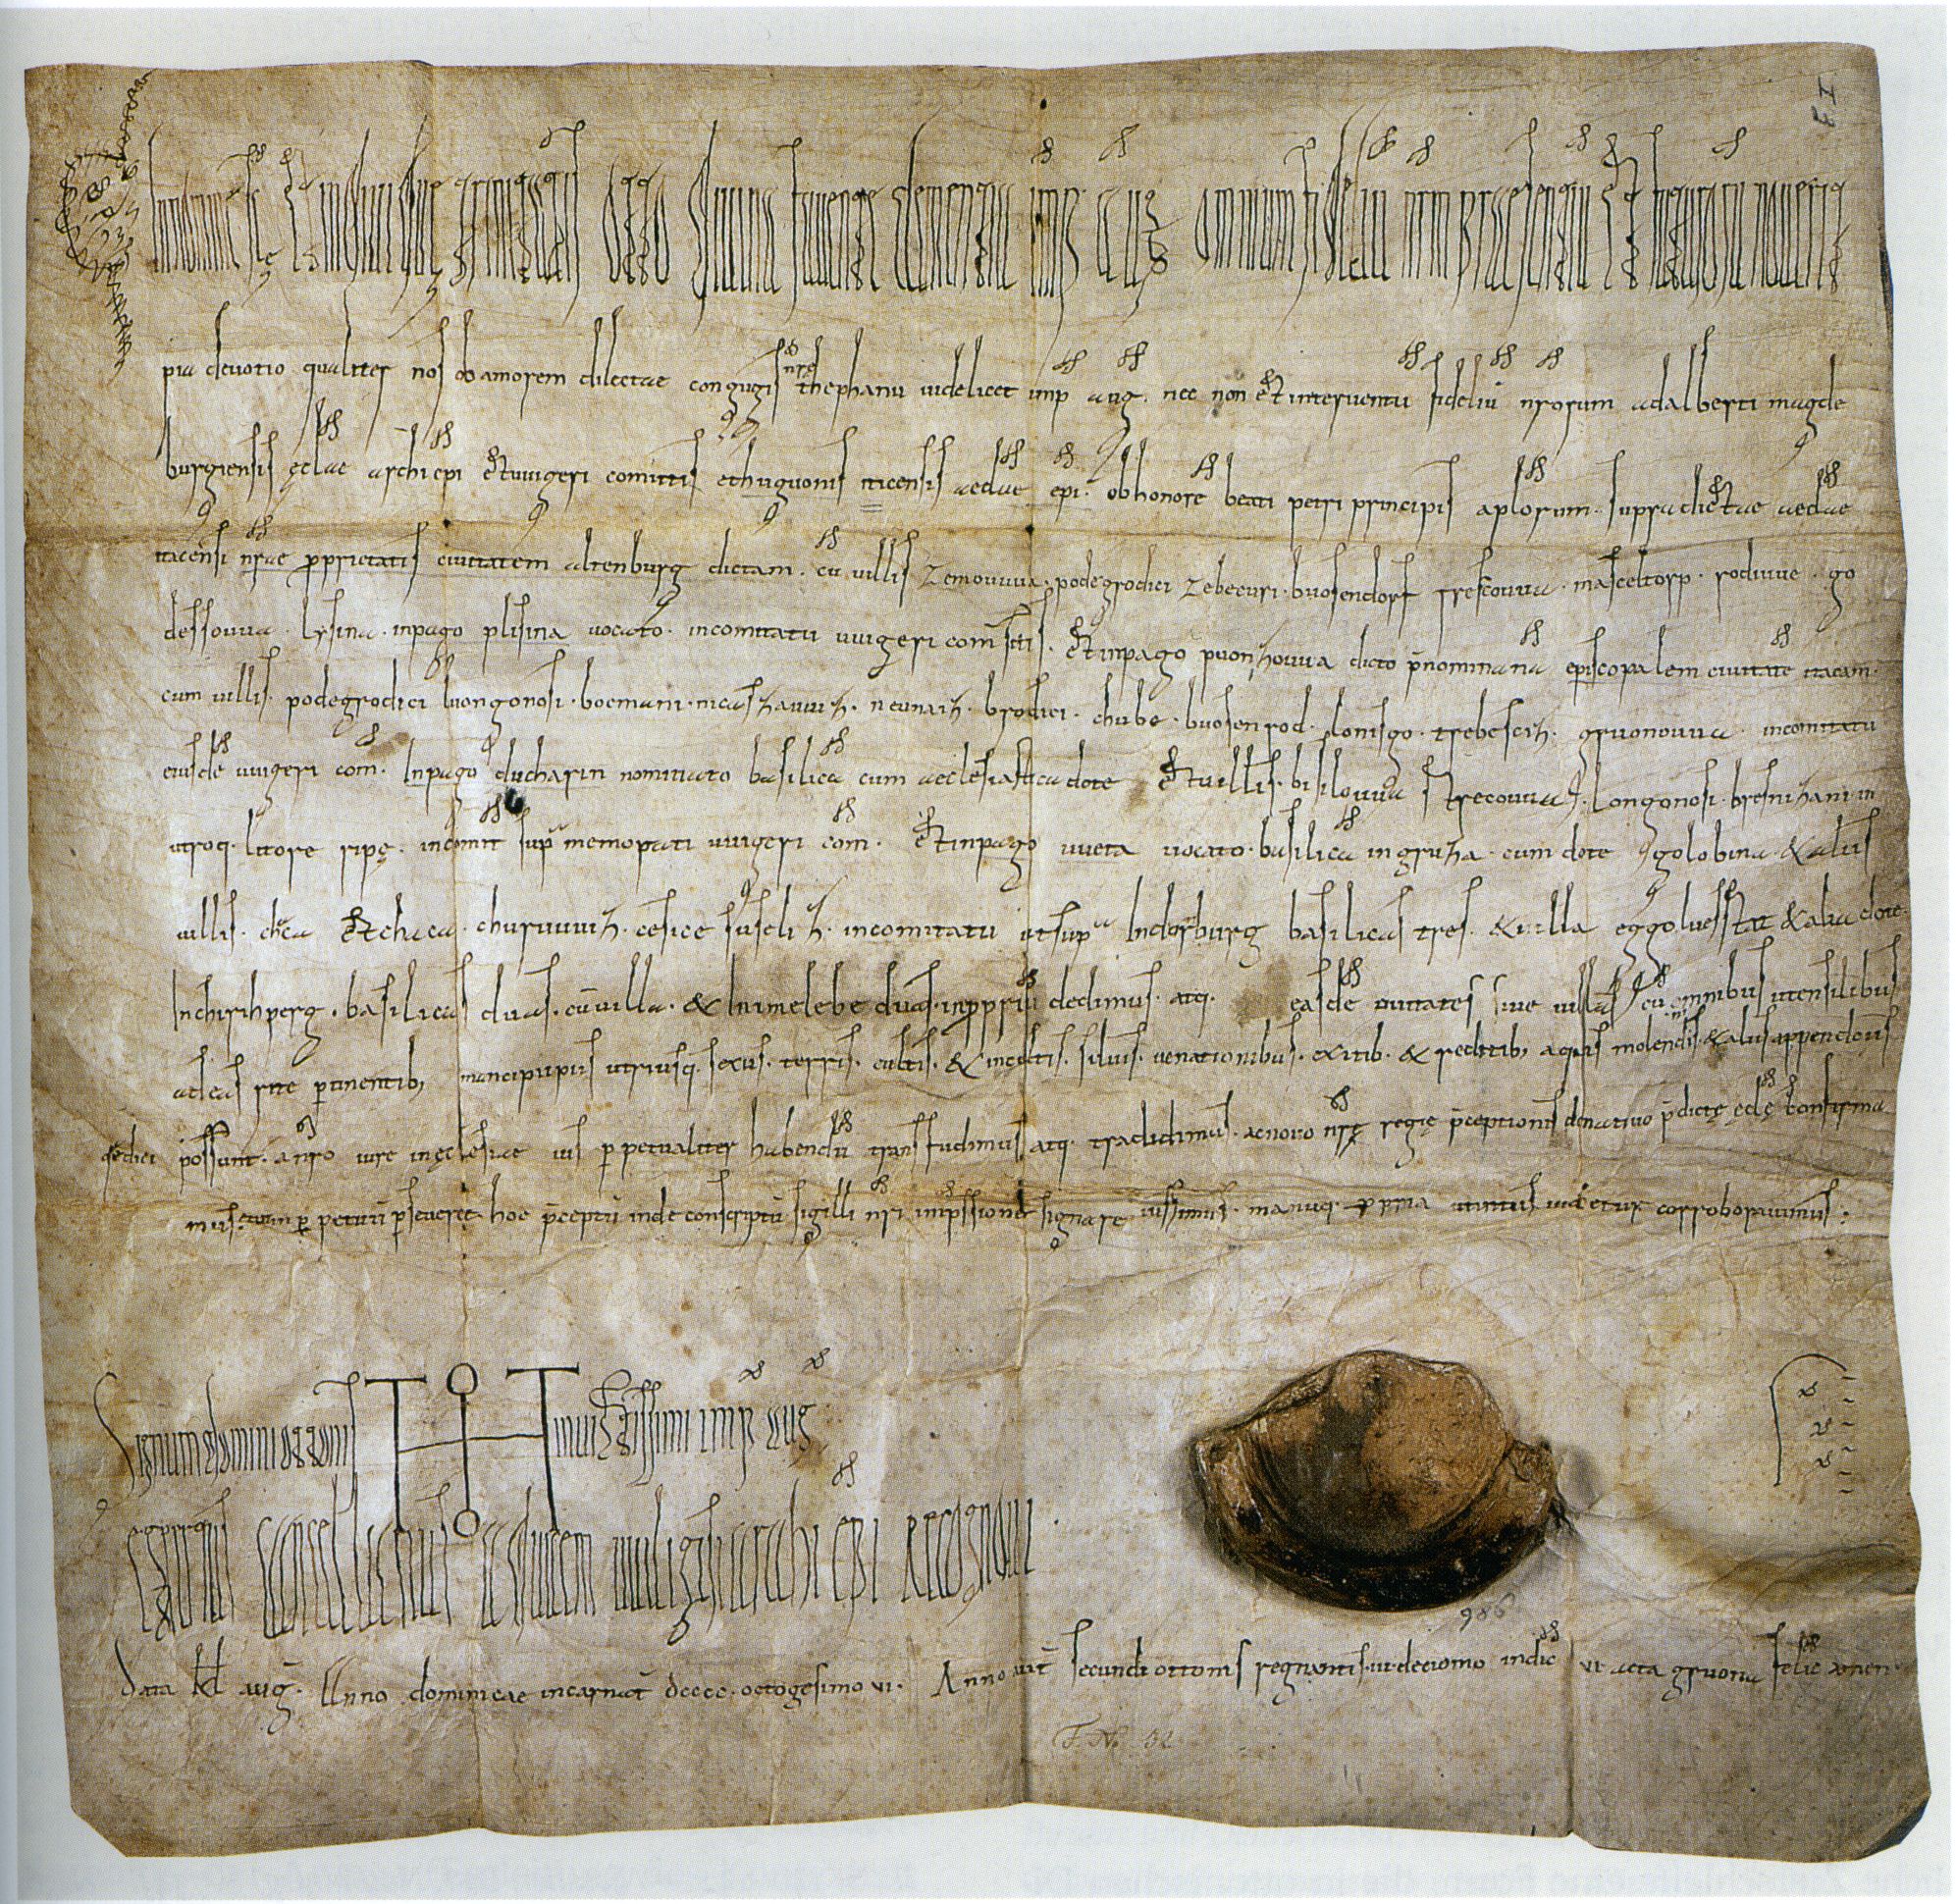 In nomine sce et individuae trinitatis Otto divina favente clementia imp aug omnium fideliu nrm praesentiu et futuroru noverit
pia devotio qualiter nos ob amorem dilectae coniugis nre thephanu videlicet imp aug. nec non et interventu fideliu nrorum adalberti magde
burgiensis ęclae archiepi et vvigeri comitis et huguonis iticensis aeclae epi. ob honore beati petri principis aplorum. supra dictae aeclae
iticensi nrae pprietatis civitatem altenburg dictam. cu villis zemouuua. podegrodici zebecuri. buosendorf trescouua. masceltorp. rodiuue. go
dessouua. lysina. in pago plisina vocato. in comitatu vvigeri comitis. et in pago puonzouua dicto p̄nominana episcopalem civitate itacam.
cum villis. podegrodici luongonosi. boemani. nicaszauuiz. neunaiz. brodici. chube. buosenrod. lonisgo. trebesciz. gruonouua. in comitatu
eiusde vvigeri com. In pago ducharin nominato basilica cum aeclesiastica dote et villis. bisilouua strecouua. longonosi. bresnizani. in
utroq. litore ripę. in comit sup memorati vvigeri com. et in pago vveta vocato. basilica in gruza. cum dote golobina. & aliis
villis. dica et chaca. churuuuiz. cesice suseliz. in comitatu ut supa In dorburg basilicas tres. & villa eggoluesstat & alia dote
In chirihperg. basilicas duas. cu villa. & In imelebe duas. in ppriu dedimus. atq. easde civitates sive villas cu omnibus utensilibus
ad eas rite ptinentib; mancipiis utriusq. sexus. terris. cultis. & incultis. silvis. venationibus. exitib. & reditib; aquis molendinis & aliis appendiciis
q dici possunt. a nro iure in ęclesiae ius p petualiter habendu transfudimus atq. tradidimus. ac novo nrę regię p̄ceptionis donativo p̄dictę ęclę confirma
mus. p petuu pseveret hoc p̄ceptu inde conscriptu sigilli nri inpssione signare iussimus. manuq. ppria ut infra videtur corroboravimus.
Signum domini ottonis invictissimi imp aug
cancellarius ad vicem vvilligisi archi epi recognovi.
Data kl aug. Anno dominicae incarnat dcccc. octogesimo vi. Anno vit secundi ottonis regnantis. vi decimo indic vi acta gruona felic amen
986
F. N. 52